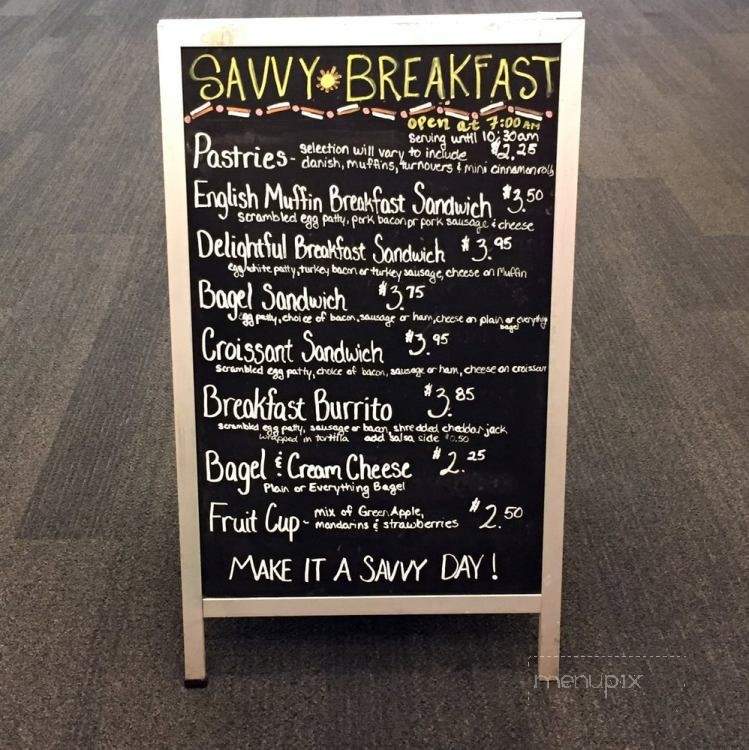 SAVVY BREAKFAST
open at 7:00 AM
serving until 10:30am
Pastries - selection will vary to include $2.25
danish, muffins, turnovers & mini cinnamon rolls
English Muffin Breakfast Sandwich $3.50
scrambled egg patty, pork bacon or pork sausage & cheese
Delightful Breakfast Sandwich $3.95
egg white patty, turkey bacon or turkey sausage, cheese on Muffin
Bagel Sandwich $3.75
egg patty, choice of bacon, sausage or ham, cheese on plain or everything
bagel
Croissant Sandwich $3.95
scrambled egg patty, choice of bacon, sausage or ham, cheese on croissant
Breakfast Burrito $3.85
scrambled egg patty, sausage or bacon, shredded cheddar jack
wrapped in tortilla add salsa side $0.50
Bagel & Cream Cheese $2.25
Plain or Everything Bagel
Fruit Cup - mix of Green Apple, $2.50
mandarins & strawberries
MAKE IT A SAVVY DAY!
menupix